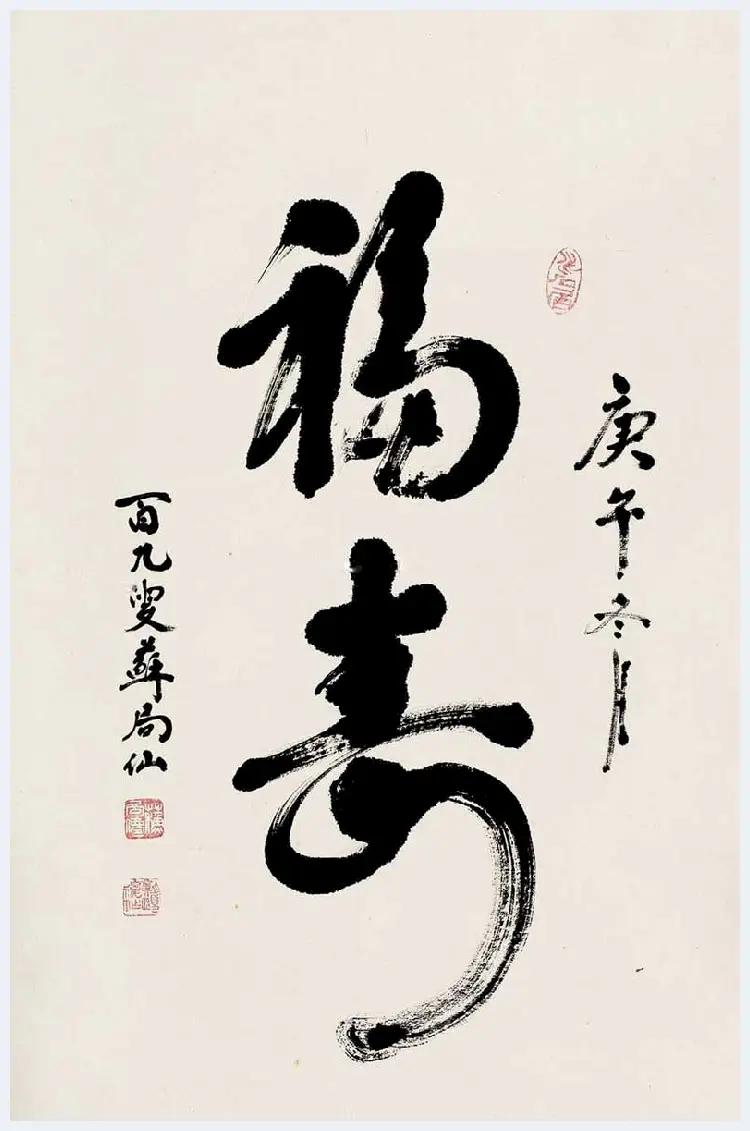 庚午冬月
福壽
百九叟蘇局仙